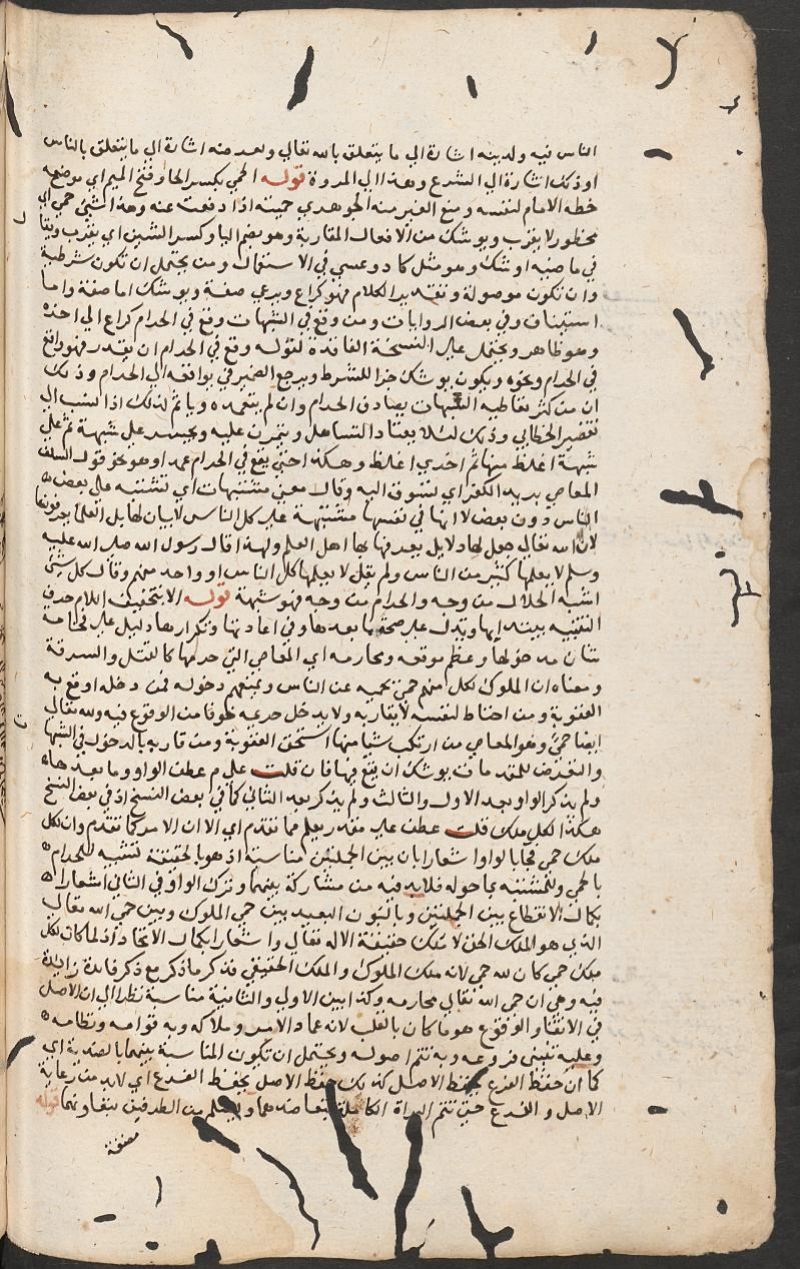 الناس فيه ولدينه اشارة الي ما يتعلق بالله تعالي ولعرضه اشارة الي ما يتعلق بالناس
او ذلك اشارة الي الشرع وهذا الي المروة قوله الحمي بكسر الحا وفتح الميم اي موضع
خطه الامام لنفسه ومنع الغير منه الجوهري حميته اذا دفعت عنه وهذا شئ حمي اي
محظور لا يقرب ويوشك من الافعال المقاربة وهو بضم اليا وكسر الشين اي يقرب ويقا
في ماضيه اوشك وهو مثل كاد وعسي في الاستعمال ومن يحتمل ان تكون شرطية
وان تكون موصولة وتقدير الكلام فهو كراع ويرعي صفة ويوشك اما صفة واما
استيناف وفي بعض الروايات ومن وقع في الشبهات وقع في الحرام كراع الي اخره
وهو ظاهر ويحتمل علي النسخة الفاقدة لقوله وقع في الحرام ان يقدر فهو واقع
في الحرام ونحوه ويكون يوشك جزا للشرط ويرجع الضمير في يواقعه الي الحرام وذلك
ان من كثر تعاطيه الشبهات يصادف الحرام وان لم يتعمده وياثم لذلك اذا نسب الي
تقصير الخطابي وذلك لئلا يعتاد التساهل ويتمرن عليه ويجسر علي شبهة ثم علي
شبهة اغلظ منها ثم اخري اغلظ وهكذا حتي يقع في الحرام عمدا وهو نحو قول السلف
المعاصي بريد الكفر اي تسوق اليه وقال معني مشتبهات اي تشتبه علي بعض
الناس دون بعض لا انها في نفسها مشتبهة علي كل الناس لا بيان لها بل العلما يعرفونها
لان الله تعالي جعل لها دلايل يعرفها بها اهل العلم ولهذا قال رسول الله صلي الله عليه
وسلم لا يعلمها كثير من الناس ولم يقل لا يعلمها كل الناس او واحد منهم وقال كل شئ
اشبه الحلال من وجه والحرام من وجه فهو شبهة قوله الا بتخفيف اللام حرف
التنبيه يبتدا بها ويدل علي صحة ما بعدها وفي اعادتها وتكرارها دليل علي فخامة
شان مدخولها وعظم موقعه ومحارمه اي المعاصي التي حرمها كالقتل والسرقة
ومعناه ان الملوك لكل منهم حمي يحميه عن الناس ويمنعهم دخوله فمن دخله اوقع به
العقوبة ومن احتاط لنفسه لا يقاربه ولا يدخل حريمه خوفا من الوقوع فيه ولله تعالي
ايضا حمي وهو المعاصي من ارتكب شيا منها استحق العقوبة ومن قاربه بالدخول في الشبها
والتعرض للمقدمات يوشك ان يقع فيها فان قلت علي م عطف الواو وما بعدها
ولم يذكر الواو بعد الاول والثالث ولم يذكر بعد الثاني كما في بعض النسخ اذ في بعض النسخ
هكذا لكل ملك قلت عطف علي مقدر يعلم مما تقدم اي الا ان الامر كما تقدم وان لكل
ملك حمي فجا بالواو اشعارا بان بين الجملتين مناسبة اذ هو بالحقيقة تشبيه للحرام
بالحمي وللمشتبه بما حوله فلا بد فيه من مشاركة بينهما وترك الواو في الثاني اشعارا
بكمال الانقطاع بين الجملتين وبالبون البعيد بين حمي الملوك وبين حمي الله تعالي
الذي هو الملك الحق لا ملك حقيقة الا له تعالي واشعارا بكمال الاتحاد اذ لما كان لكل
ملك حمي كان لله حمي لانه ملك الملوك والملك الحقيقي فذكر ما ذكر مع ذكر فايدة زايدة
فيه وهي ان حمي الله تعالي محارمه وكذا بين الاولي والثانية مناسبة نظرا الي ان الاصل
في الاتقا والوقوع هو ما كان بالقلب لانه عماد الامر وملاكه وبه قوامه ونظامه
وعليه تبتني فروعه وبه تتم اصوله ويحتمل ان تكون المناسبة بينهما بالضدية اي
كما ان حفظ الفرع بحفظ الاصل كذلك حفظ الاصل بحفظ الفرع اي لابد من رعاية
الاصل والفرع حتي تتم الكاملة بتعاضدهما من الطرفين بتعاونهما قوله
مضغة